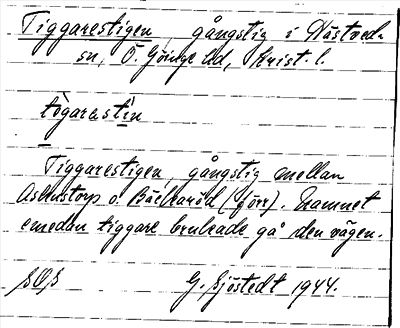 Tiggarestigen, gångstig i Västved-
sn, Ö. Göinge hd, Krist. l.
tògarastìn
Tiggarestigen, gångstig mellan
o. Bäckaröd (görr). Namnet
emedan tiggare brukade gå den vägen.
G. Sjöstedt 1944.